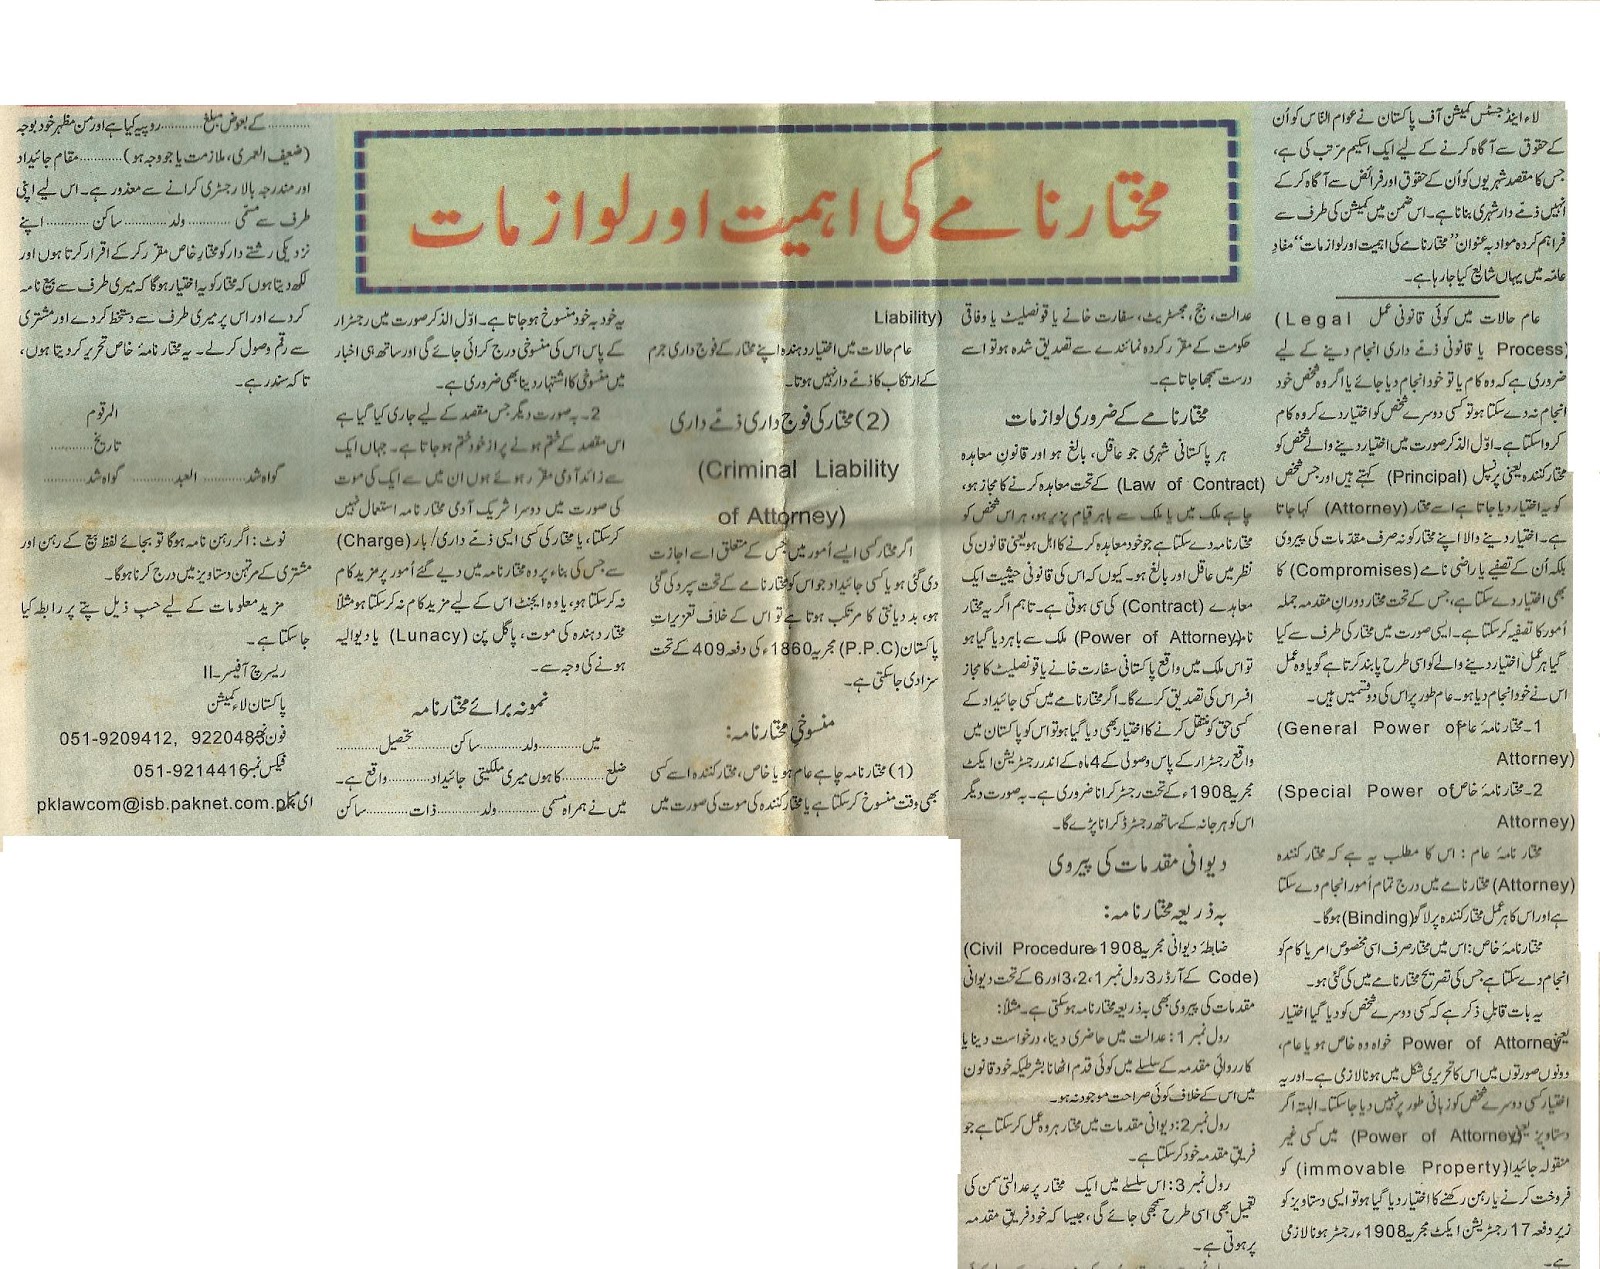 مختارنامے کی اہمیت اور لوازمات
لاء اینڈ جسٹس کمیشن آف پاکستان نے عوام الناس کو اُن
کے حقوق سے آگاہ کرنے کے لیے ایک اسکیم مرتب کی ہے،
جس کا مقصد شہریوں کو اُن کے حقوق اور فرائض سے آگاہ کر کے
انہیں ذمّے دار شہری بنانا ہے۔ اس ضمن میں کمیشن کی طرف سے
فراہم کردہ مواد بہ عنوان ’’مختارنامے کی اہمیت اور لوازمات‘‘ مفادِ
عامّہ میں یہاں شایع کیا جا رہا ہے۔
عام حالات میں کوئی قانونی عمل (Legal
Process) یا قانونی ذمّے داری انجام دینے کے لیے
ضروری ہے کہ وہ کام یا تو خود انجام دیا جائے یا اگر وہ شخص خود
انجام نہ دے سکتا ہو تو کسی دوسرے شخص کو اختیار دے کر وہ کام
کرواسکتا ہے۔ اوّل الذکر صورت میں اختیار دینے والے شخص کو
مختارکنندہ یعنی پرنسپل (Principal) کہتے ہیں اور جس شخص
کو یہ اختیار دیا جاتا ہے اسے مختار (Attorney) کہا جاتا
ہے۔ اختیار دینے والا اپنے مختار کو نہ صرف مقدّمات کی پیروی
بلکہ اُن کے تصفیے یا راضی نامے (Compromises) کا
بھی اختیار دے سکتا ہے، جس کے تحت مختار دورانِ مقدمہ جملہ
اُمور کا تصفیہ کرسکتا ہے۔ ایسی صورت میں مختار کی طرف سے کیا
گیا ہر عمل اختیار دینے والے کو اسی طرح پابند کرتا ہے گویا وہ عمل
اس نے خود انجام دیا ہو۔ عام طور پر اس کی دو قسمیں ہیں۔
1۔ مختارنامۂ عام (General Power of
Attorney)
2۔ مختارنامۂ خاص (Special Power of
Attorney)
مختار نامۂ عام : اس کا مطلب یہ ہے کہ مختارکنندہ
(Attorney) مختارنامے میں درج تمام اُمور انجام دے سکتا
ہے اور اس کا ہر عمل مختارکنندہ پر لاگو (Binding) ہوگا۔
مختارنامۂ خاص: اس میں مختار صرف اسی مخصوص امر یا کام کو
انجام دے سکتا ہے جس کی تصریح مختارنامے میں کی گئی ہو۔
یہ بات قابلِ ذکر ہے کہ کسی دوسرے شخص کو دیا گیا اختیار
یعنی Power of Attorney خواہ وہ خاص ہو یا عام،
دونوں صورتوں میں اس کا تحریری شکل میں ہونا لازمی ہے۔ اور یہ
اختیار کسی دوسرے شخص کو زبانی طور پر نہیں دیا جاسکتا۔ البتہ اگر
دستاویز یعنی (Power of Attorney) میں کسی غیر
منقولہ جائیداد (immovable Property) کو
فروخت کرنے یا رہن رکھنے کا اختیار دیا گیا ہو تو ایسی دستاویز کو
زیرِ دفعہ 17 رجسٹریشن ایکٹ مجریہ 1908ء رجسٹر ہونا لازمی
ہے۔
عدالت، جج، مجسٹریٹ، سفارت خانے یا قونصلیٹ یا وفاقی
حکومت کے مقرّر کردہ نمائندے سے تصدیق شدہ ہو تو اسے
درست سمجھا جاتا ہے۔
مختارنامے کے ضروری لوازمات
ہر پاکستانی شہری جو عاقل، بالغ ہو اور قانونِ معاہدہ
(Law of Contract) کے تحت معاہدہ کرنے کا مجاز ہو،
چاہے ملک میں یا ملک سے باہر قیام پزیر ہو، ہر اس شخص کو
مختارنامہ دے سکتا ہے جو خود معاہدہ کرنے کا اہل ہو یعنی قانون کی
نظر میں عاقل اور بالغ ہو۔ کیوں کہ اس کی قانونی حیثیت ایک
معاہدے (Contract) کی سی ہوتی ہے۔ تاہم اگر یہ مختار
نامہ (Power of Attorney) ملک سے باہر دیا گیا ہو
تو اس ملک میں واقع پاکستانی سفارت خانے یا قونصلیٹ کا مجاز
افسر اس کی تصدیق کرے گا۔ اگر مختارنامے میں کسی جائیداد کے
کسی حق کو منتقل کرنے کا اختیار بھی دیا گیا ہو تو اس کو پاکستان میں
واقع رجسٹرار کے پاس وصولی کے 4 ماہ کے اندر رجسٹریشن ایکٹ
مجریہ 1908ء کے تحت رجسٹر کرانا ضروری ہے۔ بہ صورت دیگر
اس کو ہرجانہ کے ساتھ رجسٹرڈ کرانا پڑے گا۔
دیوانی مقدمات کی پیروی
بہ ذریعہ مختارنامہ:
ضابطۂ دیوانی مجریہ 1908ء (Civil Procedure
Code) کے آرڈر 3 رول نمبر 1، 2، 3 اور 6 کے تحت دیوانی
مقدمات کی پیروی بھی بہ ذریعہ مختارنامہ ہوسکتی ہے۔ مثلاً:
رول نمبر 1: عدالت میں حاضری دینا، درخواست دینا یا
کارروائیِ مقدمہ کے سلسلے میں کوئی قدم اٹھانا بشرطیکہ خود قانون
میں اس کے خلاف کوئی صراحت موجود نہ ہو۔
رول نمبر 2: دیوانی مقدمات میں مختار ہر وہ عمل کرسکتا ہے جو
فریقِ مقدمہ خود کرسکتا ہے۔
رول نمبر 3: اس سلسلے میں ایک مختار پر عدالتی سمن کی
تعمیل بھی اسی طرح سمجھی جائے گی، جیسا کہ خود فریقِ مقدمہ
پر ہوتی ہے۔
Liability)
عام حالات میں اختیار دہندہ اپنے مختار کے فوج داری جرم
کے ارتکاب کا ذمّے دار نہیں ہوتا۔
(2) مختار کی فوج داری ذمّے داری
(Criminal Liability
of Attorney)
اگر مختار کسی ایسے اُمور میں جس کے متعلق اسے اجازت
دی گئی ہو یا کسی جائیداد جو اس کو مختارنامے کے تحت سپرد کی گئی
ہو، بددیانتی کا مرتکب ہوتا ہے تو اس کے خلاف تعزیراتِ
پاکستان (P.P.C) مجریہ 1860ء کی دفعہ 409 کے تحت
سزا دی جاسکتی ہے۔
منسوخیِ مختارنامہ:
(1) مختارنامہ چاہے عام ہو یا خاص، مختارکنندہ اسے کسی
بھی وقت منسوخ کرسکتا ہے یا مختارکنندہ کی موت کی صورت میں
یہ خود بہ خود منسوخ ہوجاتا ہے۔ اوّل الذکر صورت میں رجسٹرار
کے پاس اس کی منسوخی درج کرائی جائے گی اور ساتھ ہی اخبار
میں منسوخی کا اشتہار دینا بھی ضروری ہے۔
2۔ بہ صورت دیگر جس مقصد کے لیے جاری کیا گیا ہے
اس مقصد کے ختم ہونے پر از خود ختم ہوجاتا ہے۔ جہاں ایک
سے زائد آدمی مقرّر ہوئے ہوں ان میں سے ایک کی موت
کی صورت میں دوسرا شریک آدمی مختارنامہ استعمال نہیں
کرسکتا، یا مختار کی کسی ایسی ذمّے داری/بار (Charge)
سے جس کی بناء پر وہ مختارنامہ میں دیے گئے اُمور پر مزید کام
نہ کرسکتا ہو، یا وہ ایجنٹ اس کے لیے مزید کام نہ کرسکتا ہو مثلاً
مختار دہندہ کی موت، پاگل پن (Lunacy) یا دیوالیہ
ہونے کی وجہ سے۔
نمونہ برائے مختارنامہ
میں............ولد............ساکن............تحصیل............
ضلع............کا ہوں میری ملکیتی جائیداد............واقع ہے۔
میں نے ہمراہ مسمّی............ولد............ذات............ساکن
............کے بعوض مبلغ............روپیہ کیا ہے اور من مظہر خود بوجہ
(ضعیف العمری، ملازمت یا جو وجہ ہو)............مقام جائیداد
اور مندرجہ بالا رجسٹری کرانے سے معذور ہے۔ اس لیے اپنی
طرف سے مسمّی............ولد............ساکن............اپنے
نزدیکی رشتے دار کو مختارِ خاص مقرّر کر کے اقرار کرتا ہوں اور
لکھ دیتا ہوں کہ مختار کو یہ اختیار ہوگا کہ میری طرف سے بیع نامہ
کردے اور اس پر میری طرف سے دستخط کردے اور مشتری
سے رقم وصول کرلے۔ یہ مختارنامۂ خاص تحریر کردیتا ہوں،
تاکہ سند رہے۔
المرقوم
تاریخ............
گواہ شد............ العبد............ گواہ شد............
نوٹ : اگر رہن نامہ ہوگا تو بجائے لفظ بیع کے رہن اور
مشتری کے مرتہن دستاویز میں درج کرنا ہوگا۔
مزید معلومات کے لیے حسبِ ذیل پتے پر رابطہ کیا
جاسکتا ہے۔
ریسرچ آفیسر-II
پاکستان لاء کمیشن
فون نمبر 051-9209412, 9220483
فیکس نمبر 051-9214416
ای میل pklawcom@isb.paknet.com.pk